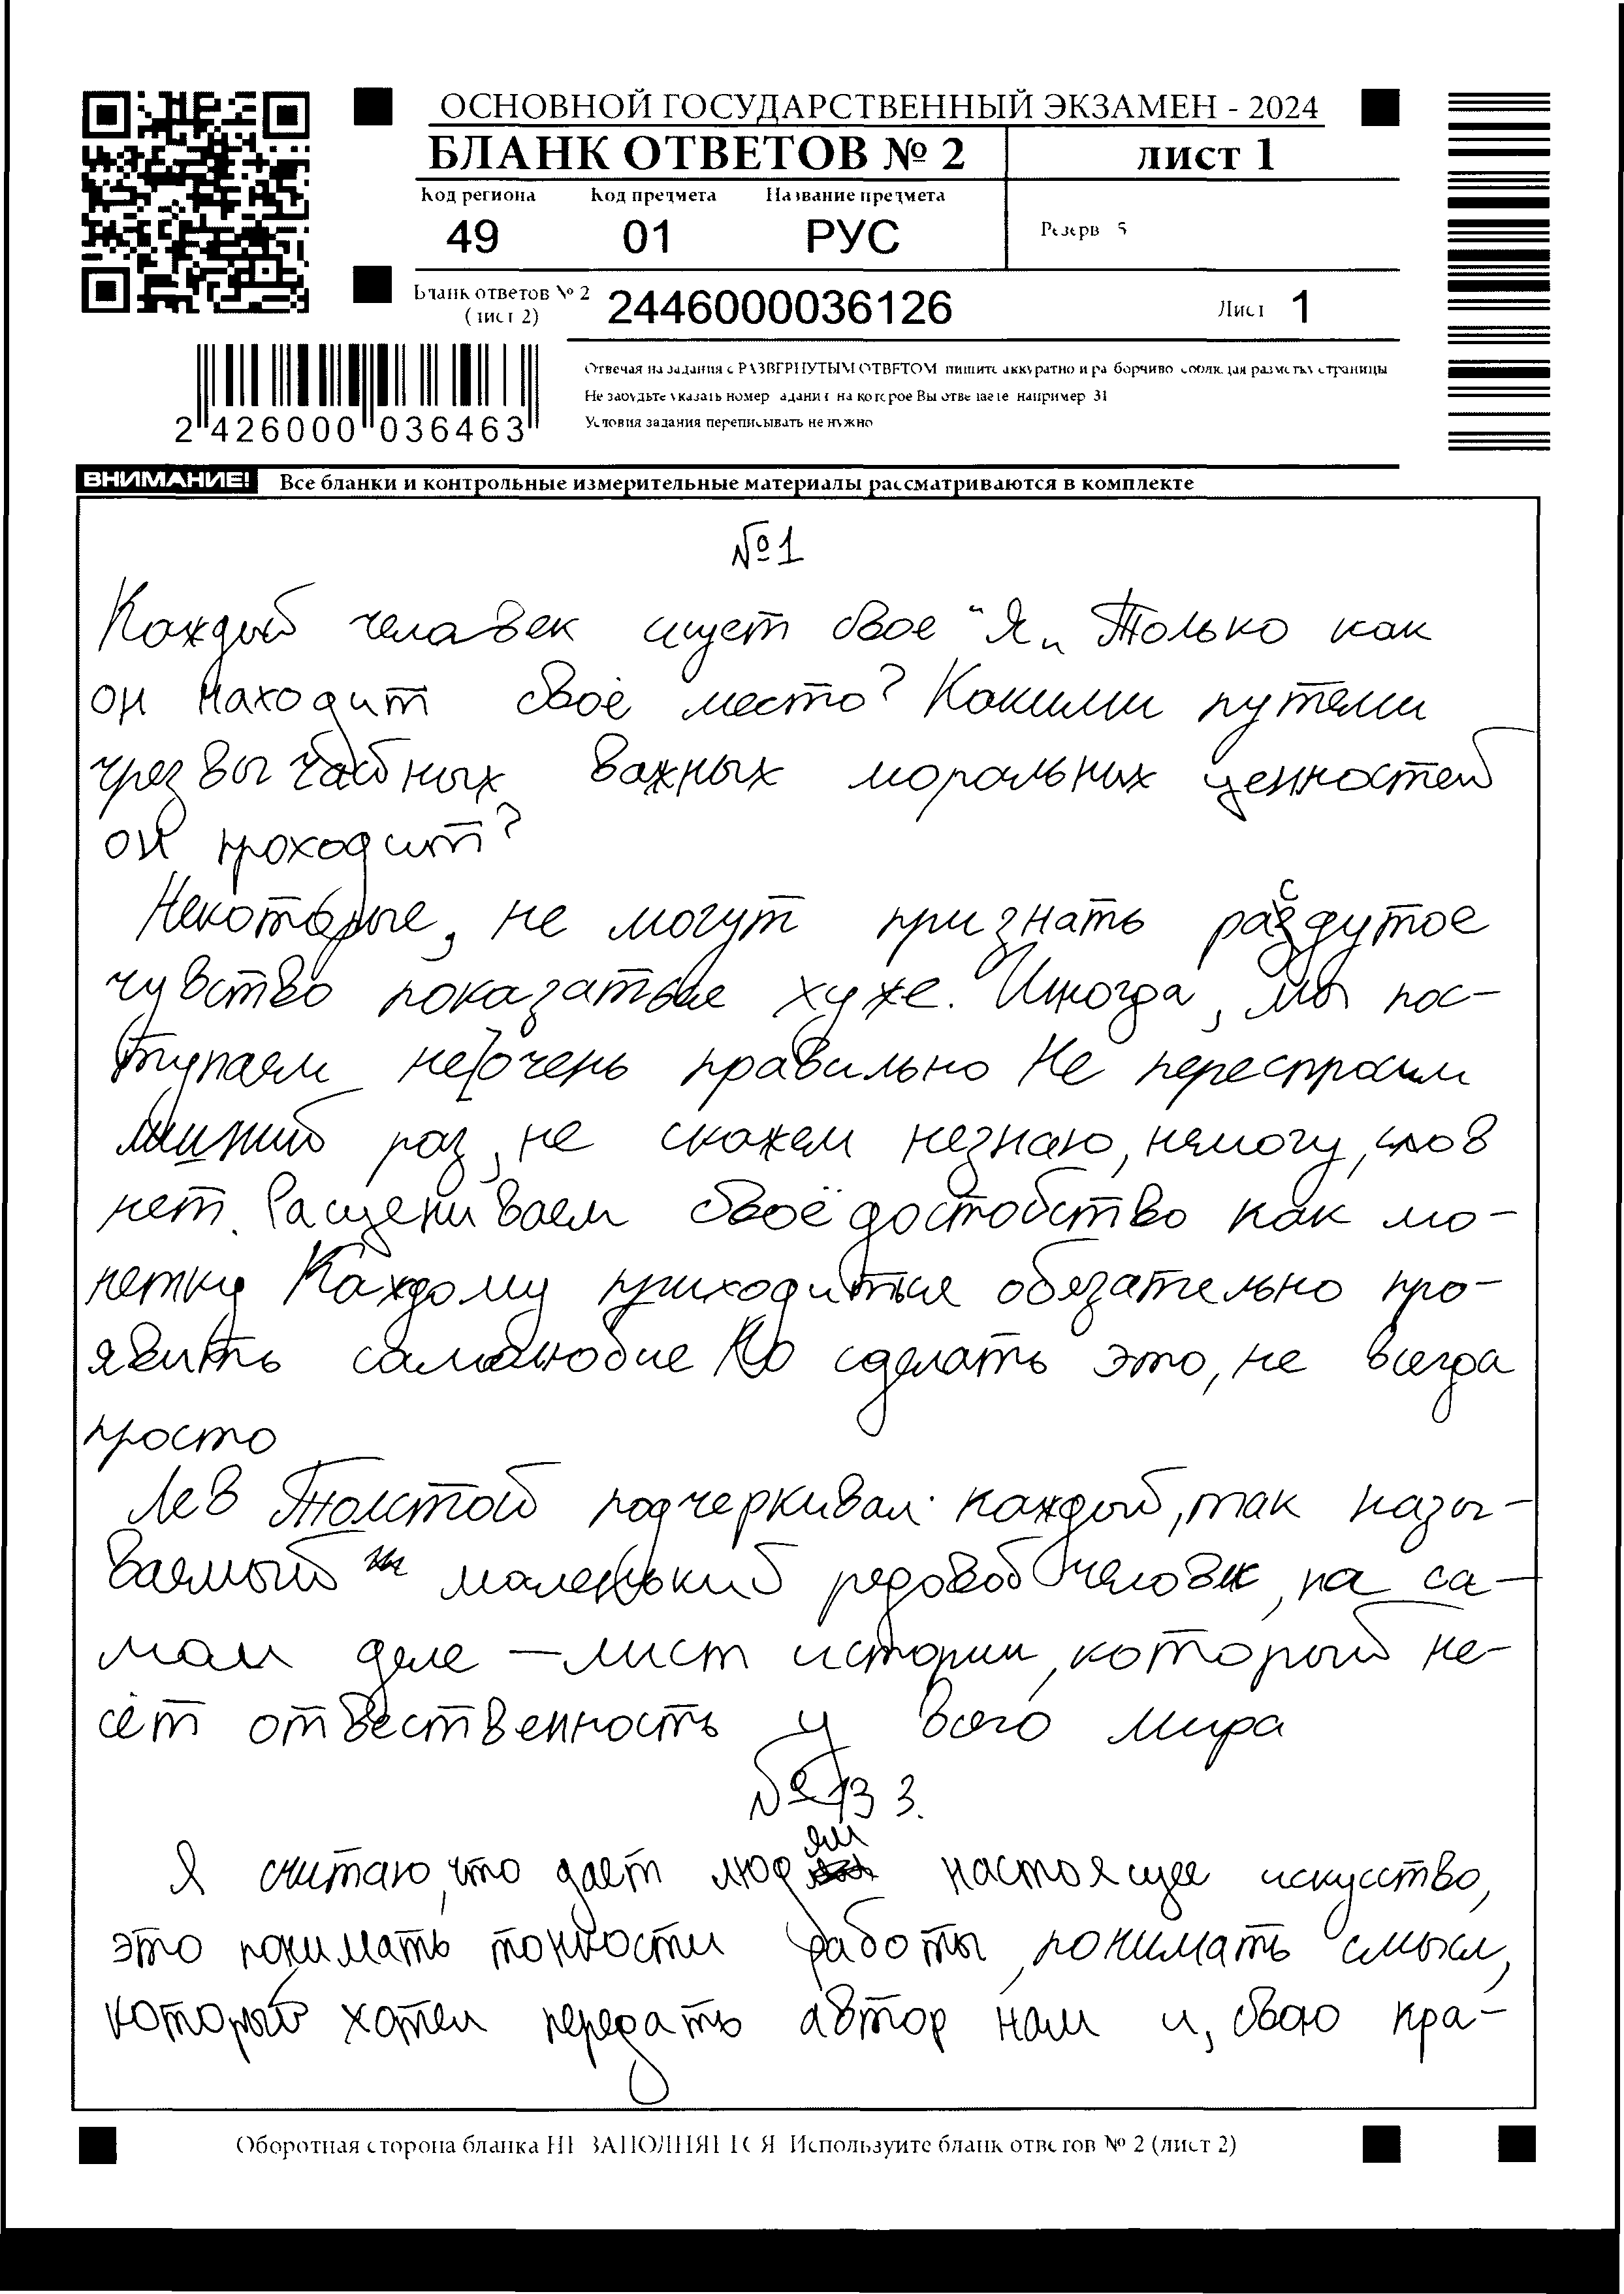 ОСНОВНОЙ ГОСУДАРСТВЕННЫЙ ЭКЗАМЕН - 2024
БЛАНК ОТВЕТОВ № 2
ЛИСТ 1
Код региона Код предмета Название предмета
49 01 РУС
Резерв 5
Бланк ответов № 2
(лист 2)
2446000036126
Лист 1
2 426000 036463
Отвечая на задания с РАЗВЕРНУТЫМ ОТВЕТОМ пишите аккуратно и разборчиво соблюдая разметку страницы
Не забудьте указать номер задания на которое Вы отвечаете например 31
Условия задания переписывать не нужно
ВНИМАНИЕ! Все бланки и контрольные измерительные материалы рассматриваются в комплекте
№1
Каждый человек ищет свое "Я„ Только как
он находит своё место? Какими путями
чрезвычайных важных моральных ценностей
он проходит?
Некоторые, не могут признать расдутое
чувство показаться хуже. Иногда, мы пос-
тупаем не очень правильно Не переспросим
лишний раз, не скажем незнаю, немогу, слов
нет. Расцениваем своё достойство как мо-
нетку Каждому приходиться обязательно про-
явить самолюбие Но сделать это, не всегда
просто
Лев Толстой подчеркивал: каждый, так назы-
ваемый маленький редовой человек, на са-
мом деле — лист истории, который не-
сёт отвественность у всего мира
№13 3.
Я считаю, что даёт людям настоящее искусство,
это понимать тонкости работы, понимать смысл,
который хотел передать автор нам и, свою кра-
Оборотная сторона бланка НЕ ЗАПОЛНЯЕТСЯ Используйте бланк ответов № 2 (лист 2)